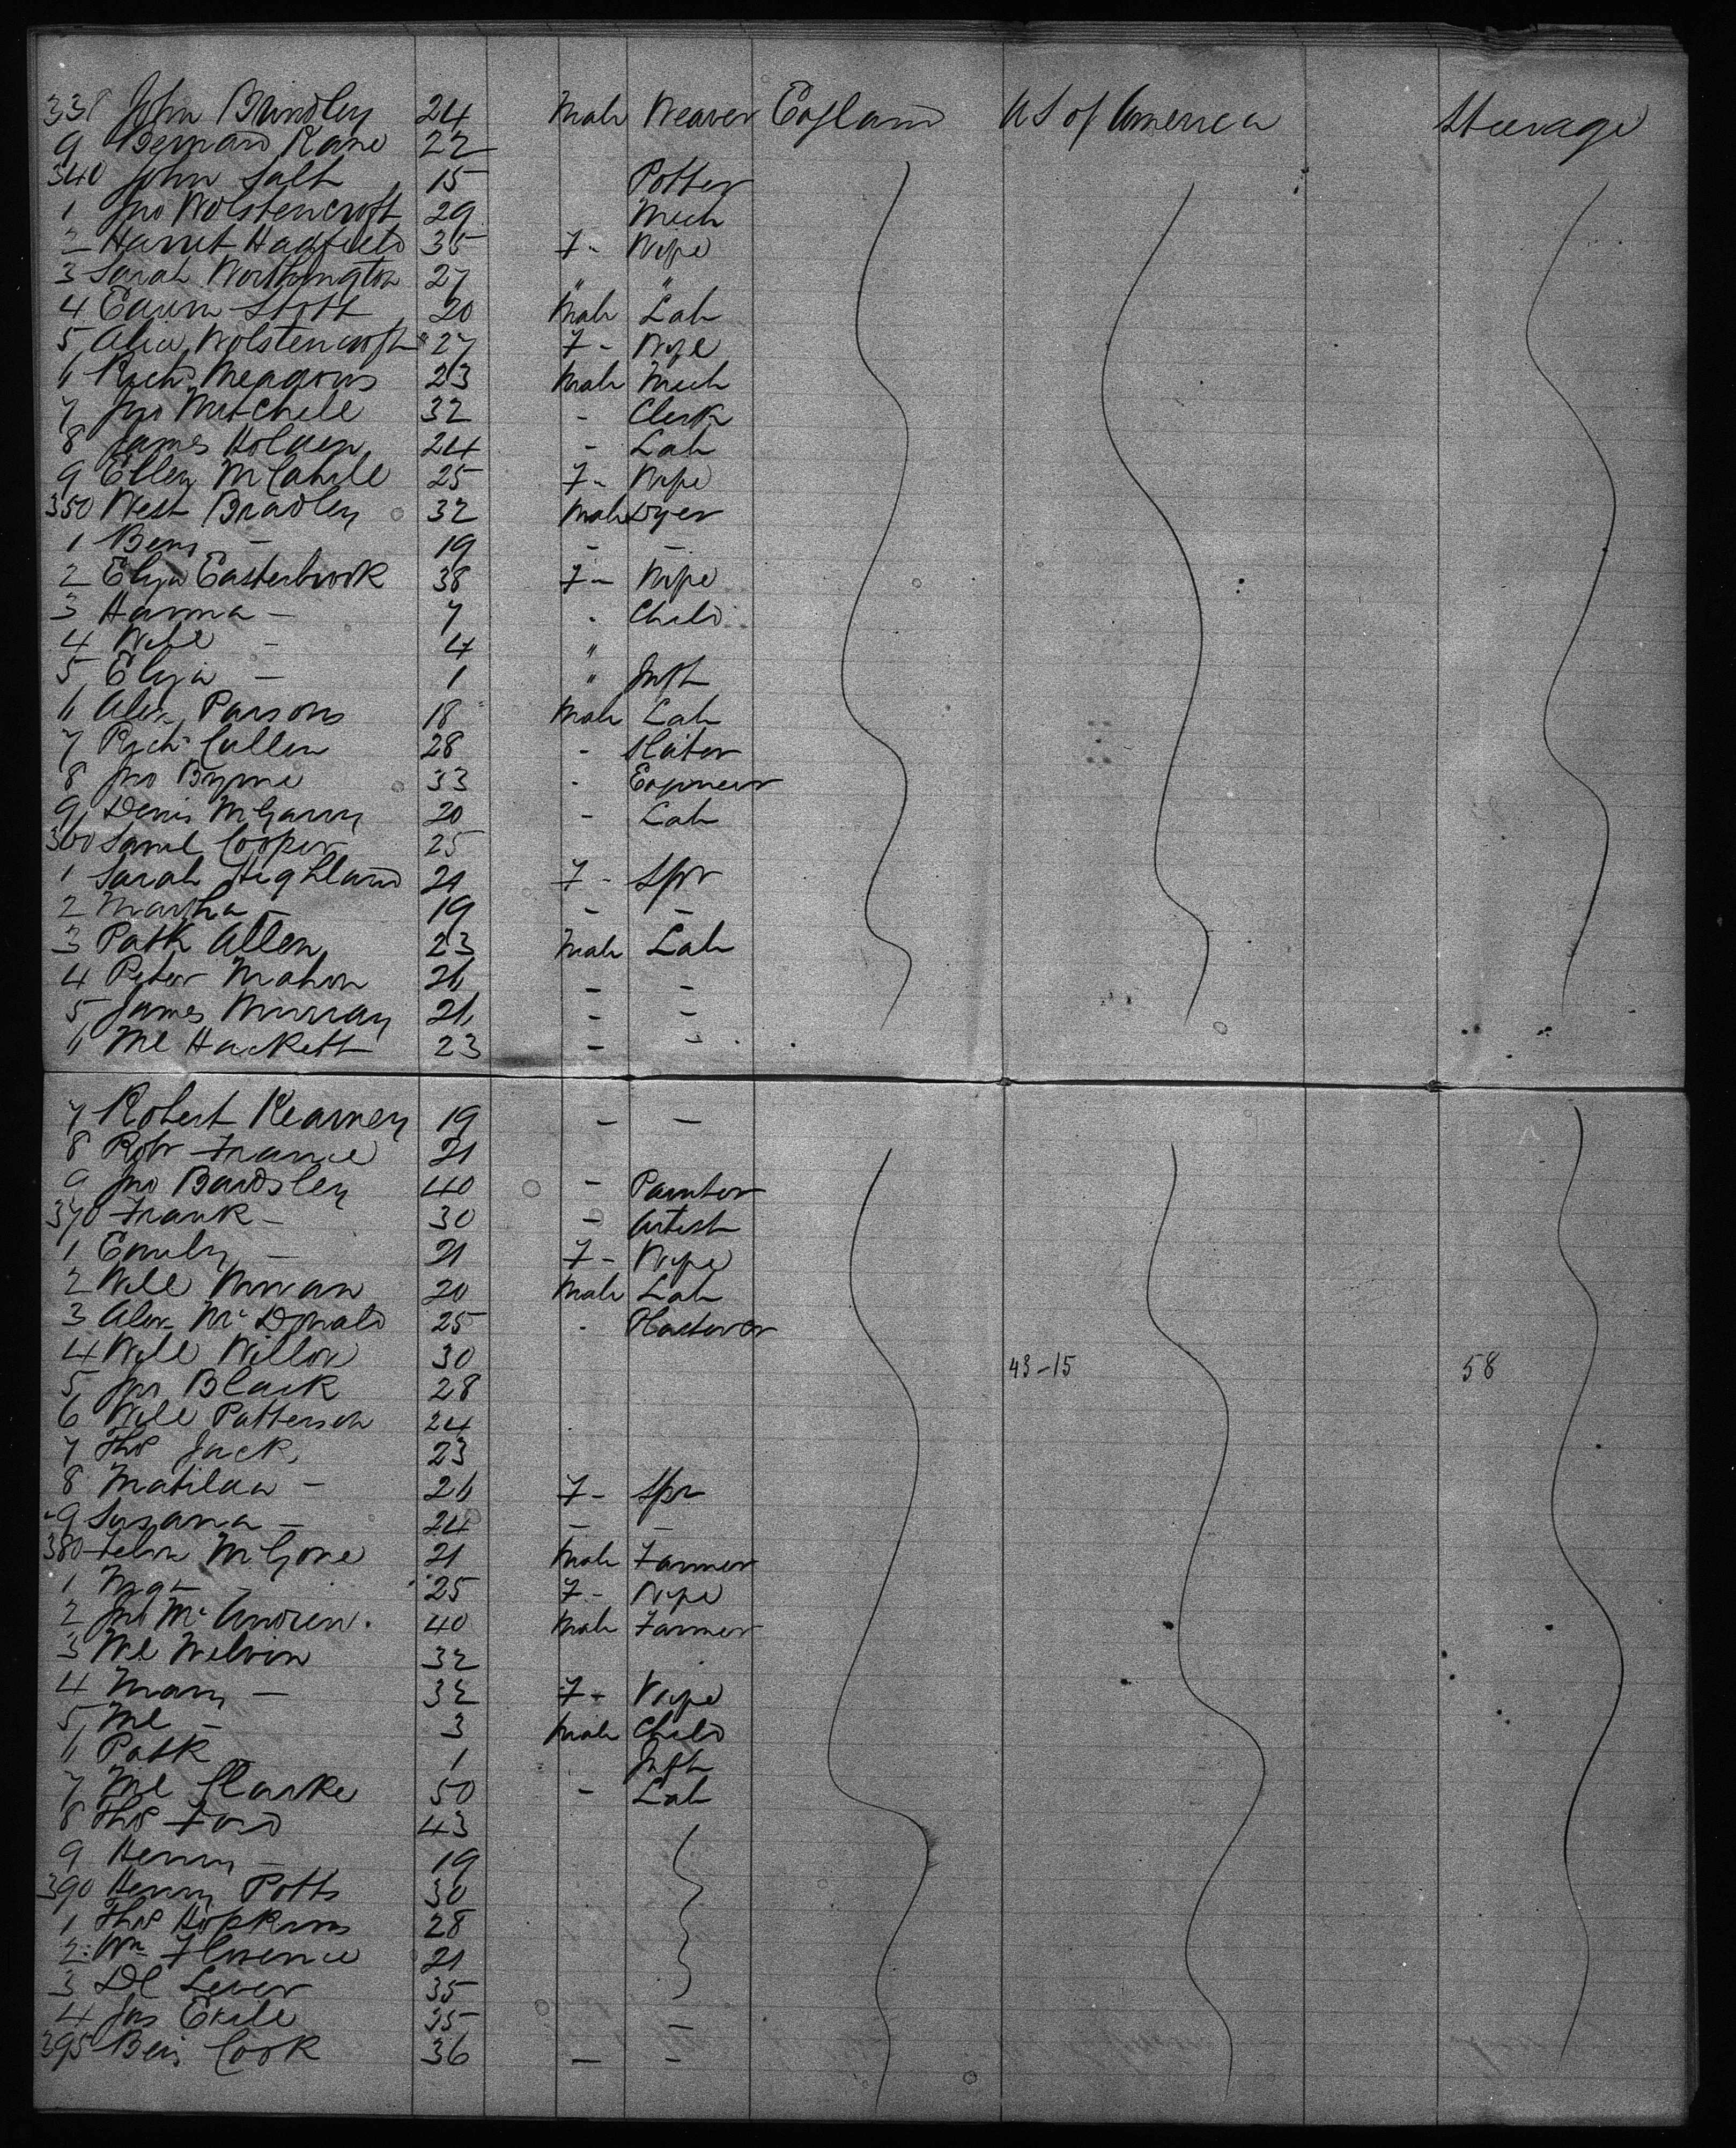 338 John Brindley 24 Male Weaver England U S of America Steerage
9 Bernard Kane 22
340 John Salt 15 Potter
1 Jno Wolstencroft 29 Mech
2 Harriet Hadfield 35 F - Wife
3 Sarah Worthington 27 " "
4 Edwin Stott 20 Male Lab
5 Alice Wolstencroft 27 F - Wife
6 Richd Meadows 23 Male Mech
7 Jno Mitchell 32 - Clerk
8 James Holden 24 - Lab
9 Ellen McCahill 25 F - Wife
350 West Bradley 32 Male Dyer
1 Benj - 19 - -
2 Eliza Easterbrook 38 F - Wife
3 Hanna - 7 - Child
4 - 4 "
5 Eliza - 1 " Inft
6 Alex Parsons 18 Male Lab
7 Richd Cullen 28 - Slater
8 Jno Byrne 33 - Engineer
9 Denis McGarry 20 - Lab
360 Saml Cooper 25
1 Sarah Highland 21 F - Spr
2 Martha - 19 - -
3 Patk Allen 23 Male Lab
4 Peter Mahon 26 - -
5 James Murray 21 - -
6 Ml Hackett 23 - -
7 Robert Kearney 19 - -
8 Robt France 21
9 Jno Bardsley 40 - Painter
370 Frank - 30 - Artist
1 Emily - 21 F - Wife
2 Will 20 Male Lab
3 Alex McDonald 25 - Plasterer
4 Will Willox 30 43-15 58
5 Jno Black 28
6 Will Patterson 24
7 Thos Jack 23
8 Matilda - 26 F - Spr
9 Susana - 24 - -
380 Felix 21 Male Farmer
1 Mgt - 25 F - Wife
2 Jno McAndrew 40 Male Farmer
3 Ml Melvin 32
4 Mary - 32 F - Wife
5 Ml - 3 Male Child
6 Patk 1 Inft
7 Ml Clarke 50 - Lab
8 Thos Ford 43
9 Henry - 19
390 Henry Potts 30
1 Thos Hopkins 28
2 Wm Florence 21
3 Dl Lever 35
4 Jas 35 -
395 Benj Cook 36 - -